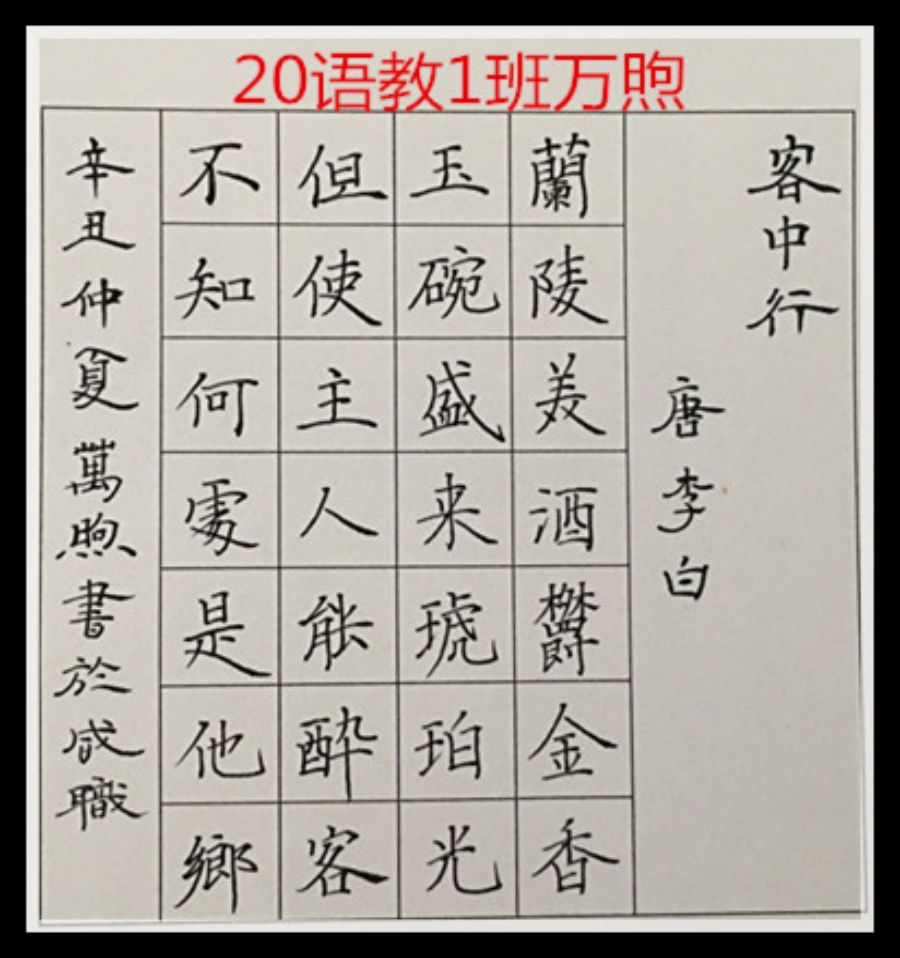 20语教1班万煦
客中行
唐李白
蘭陵美酒欝金香
玉碗盛来琥珀光
但使主人能醉客
不知何處是他鄉
辛丑仲夏萬煦書於咸職